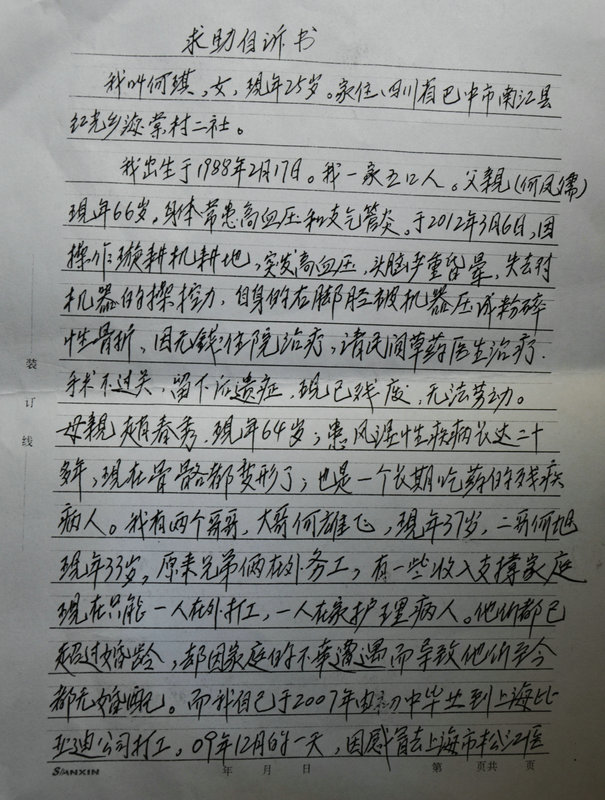 求助自诉书
我叫何琪，女，现年25岁。家住四川省巴中市南江县
红光乡海棠村二社。
我出生于1988年2月17日。我一家五口人。父親(何凤儒)
现年66岁，身体常患高血压和支气管炎。于2012年3月6日，因
操作旋耕机耕地，突发高血压，头脑严重昏晕，失去对
机器的操控力，自身的右脚胫被机器压成粉碎
性骨折，因无錢住院治疗，请民间草药医生治疗.
手术不过关，留下后遗症，现已残废，无法劳动。
母親赵春秀，现年64岁；患风湿性疾病长达二十
多年，现在骨骼都变形了；也是一个长期吃药的残疾
病人。我有两个哥哥，大哥何雄飞，现年37岁，二哥何旭
现年33岁，原来兄弟俩在外务工，有一些收入支撑家庭
现在只能一人在外打工，一人在家护理病人。他们都已
超过婚龄，都因家庭的不幸遭遇而导致他们至今
都无婚配。而我自己于2007年由初中毕业到上海比
亚迪公司打工，09年12月的一天，因感冒去上海市松江医
装订线
SIANXIN 年 月 日 第 页共 页